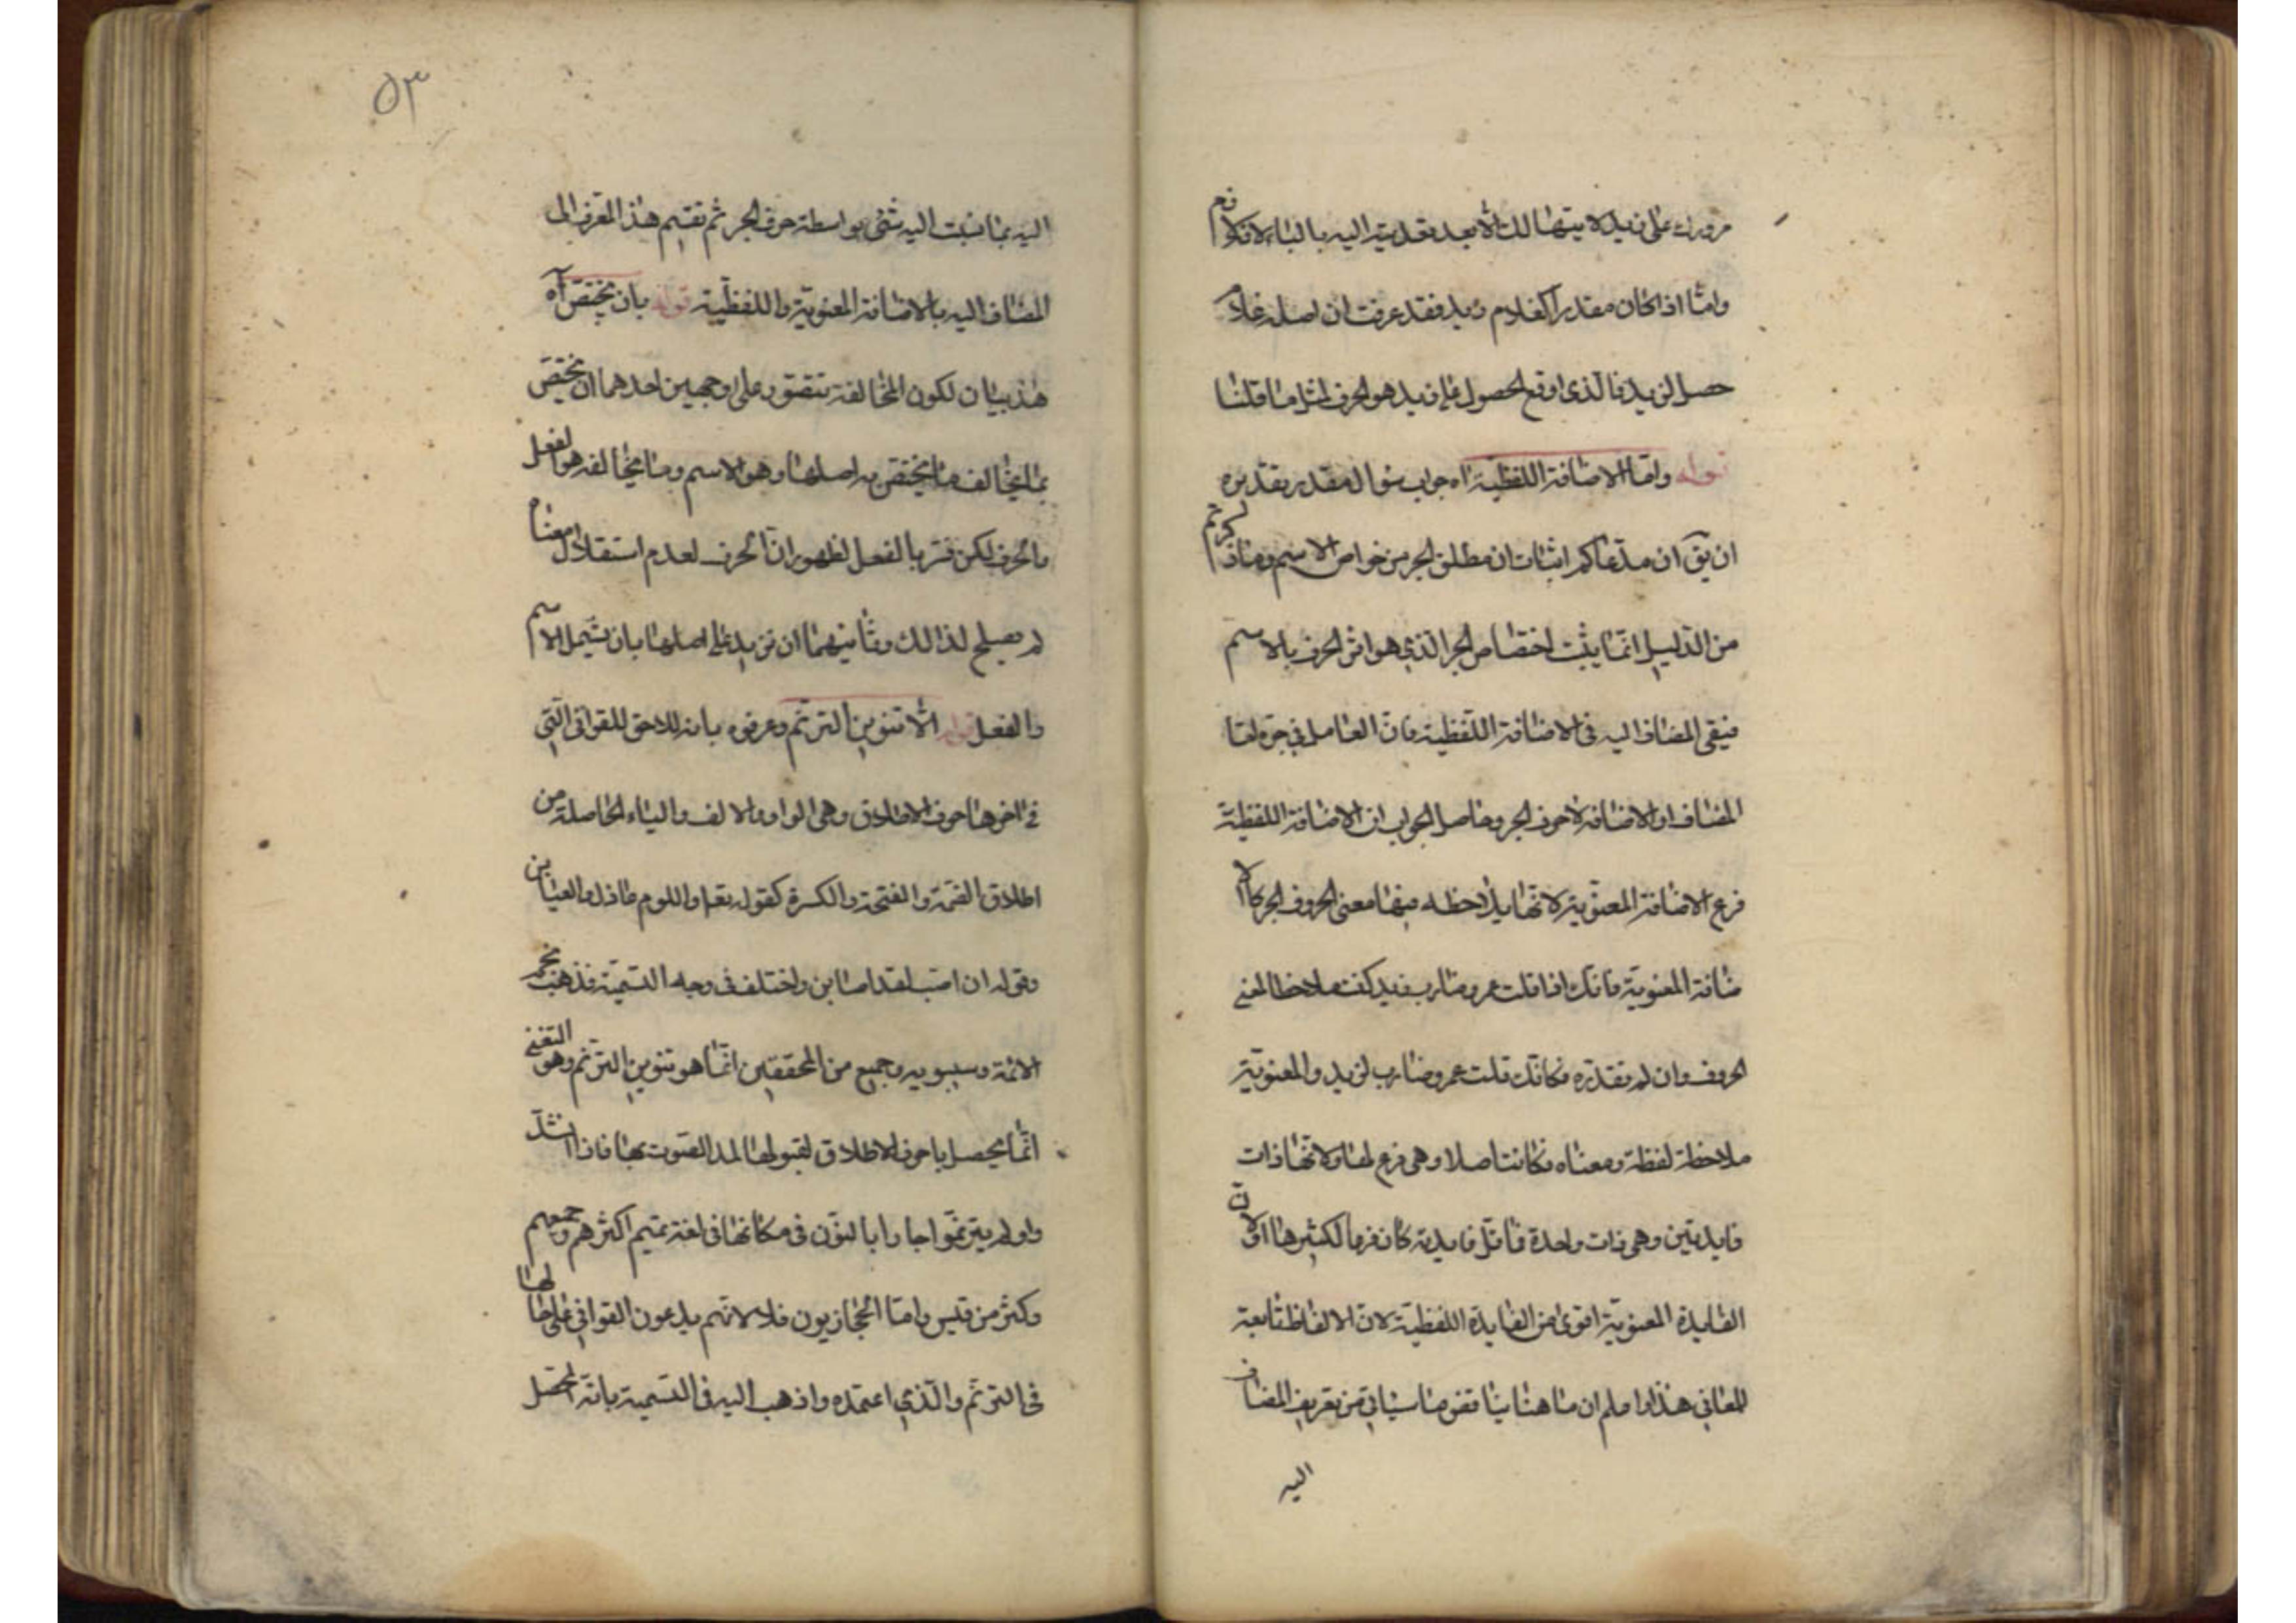 مرورك على زيد لا يتهيا لك الا بعد تقديته اليه بالباء الا فكلام
واما اذا كان مقدرا كغلام زيد فقد عرفت ان اصله غلام
حصل لزيد فالذى اوقع الحصول على زيد هو الحرف لمثل ما قلنا
قوله واما الاضافة اللفظية اه جواب سؤال مقدر تقديره
ان يق ان مدعاكم اثبات ان مطلق الجر من خواص الاسم وما ذكرتم
من الدليل انما يثبت اختصاص الجر الذى هو اثر الحرف بالاسم
فيقى المضاف اليه فى الاضافة اللفظية فان العامل فى جره اما
المضاف او الاضافة لا حرف الجر وحاصل الجواب ان الاضافة اللفظية
فرع الاضافة المعنوية لانها يلاحظ فيها معنى الحروف الجر كالا
ضافة المعنوية فانك اذا قلت عمرو ضارب زيد كنت ملاحظا لمعنى
الحروف وان لم تقدره فكانك قلت عمرو ضارب لزيد والمعنوية
ملاحظة لفظة ومعناه فكانت اصلا وهى فرع لها ولانها ذات
فايدتين وهى ذات واحدة فاقل فايدة كان فرعا لكثيرها او لان
الفايدة المعنوية اقوى من الفايدة اللفظية لان الالفاظ تابعة
للمعانى هذا واعلم ان ما هنا يناقض ما سياتى من تعريف المضاف
اليه
٥٣
اليه بما نسبت اليه شئ بواسطة حرف الجر ثم تقسيم هذا المعرف الى
المضاف اليه بالاضافة المعنوية واللفظية قوله بان يختص اه
هذا بيان لكون المخالفة تتصور على وجهين احدهما ان يختص
بما يخالف ما يختص به اصلها وهو الاسم وما يخالفه هو الفعل
والحرف لكن فسر بالفعل لظهور ان الحرف لعدم استقلال معناه
لم يصلح لذالك وثانيهما ان تزيد على اصلها بان يشمل الاسم
والفعل قوله الا تنوين الترنم وعرفوه بانه اللاحق للقوافى التى
فى اخرها حرف الاطلاق وهى الواو والالف والياء الحاصلة من
اطلاق الضمة والفتحة والكسرة كقوله اللوم عاذل والعتابن
وقوله ان اصبت لقد اصابن واختلف فى وجه التسمية فذهب نجم
الائمة وسيبويه وجميع من المحققين انما هو تنوين الترنم وهو التغنى
انما يحصل باحرف الاطلاق لقبولها لمد الصوت بها فاذا انشد
واو لم يترنموا جاوا بالنون فى مكانها فى لغة تميم اكثرهم وجميعهم
وكثر من قيس واما الحجازيون فلا لانهم يدعون القوافى على حالها
فى الترنم والذى اعتمده واذهب اليه فى التسمية بانه المحصل